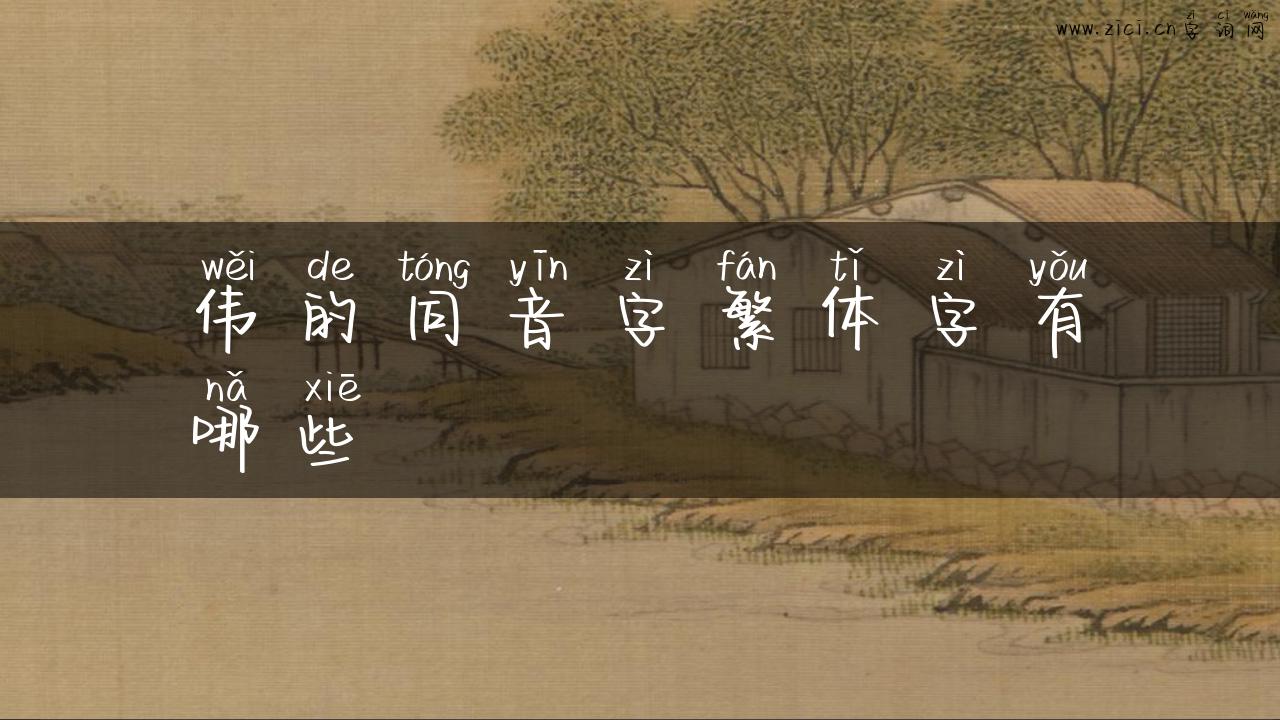 zì cí wǎng
www.zici.cn字词网
wěi de tóng yīn zì fán tǐ zì yǒu
伟的同音字繁体字有
nǎ xiē
哪些